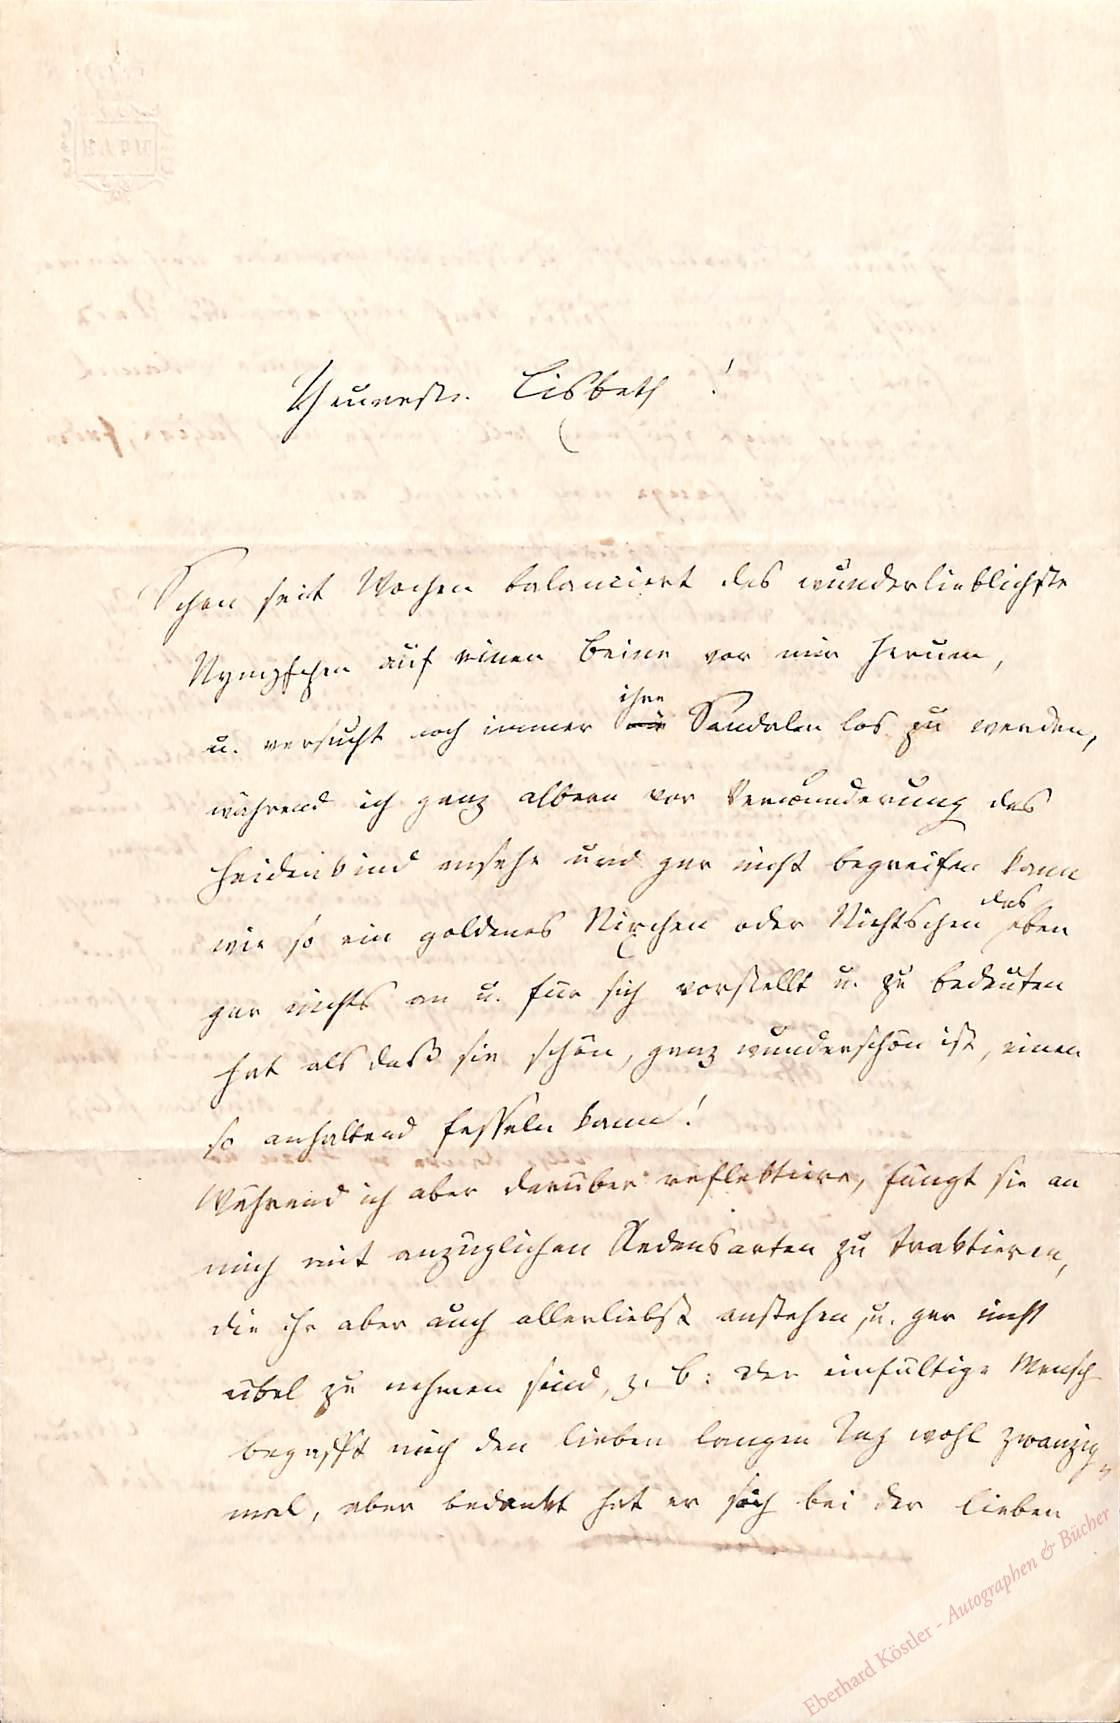 Theuerste Lisbeth!
Schon seit Wochen balanciert das wunderlieblichste
Nympfchen auf einem Beine vor mir herum,
u. versucht noch immer ihre Sandalen los zu werden,
während ich ganz albern vor Verwunderung das
Heidenkind ansehe und gar nicht begreifen kann
wie so ein goldenes Nixchen oder Nichtschen das eben
gar nichts an u. für sich vorstellt u. zu bedeuten
hat als daß sie schön, ganz wunderschön ist, einen
so anhaltend fesseln kann!
Während ich aber darüber reflektiere, fängt sie an
mich mit anzüglichen Redensarten zu traktieren,
die ihr aber auch allerliebst anstehen, u. gar nicht
übel zu nehmen sind, z. b: der einfältige Mensch
begafft mich den lieben langen Tag wohl zwanzig-
mal, aber bedankt hat er sich bei der lieben
Eberhard Köstler - Autographen & Bücher